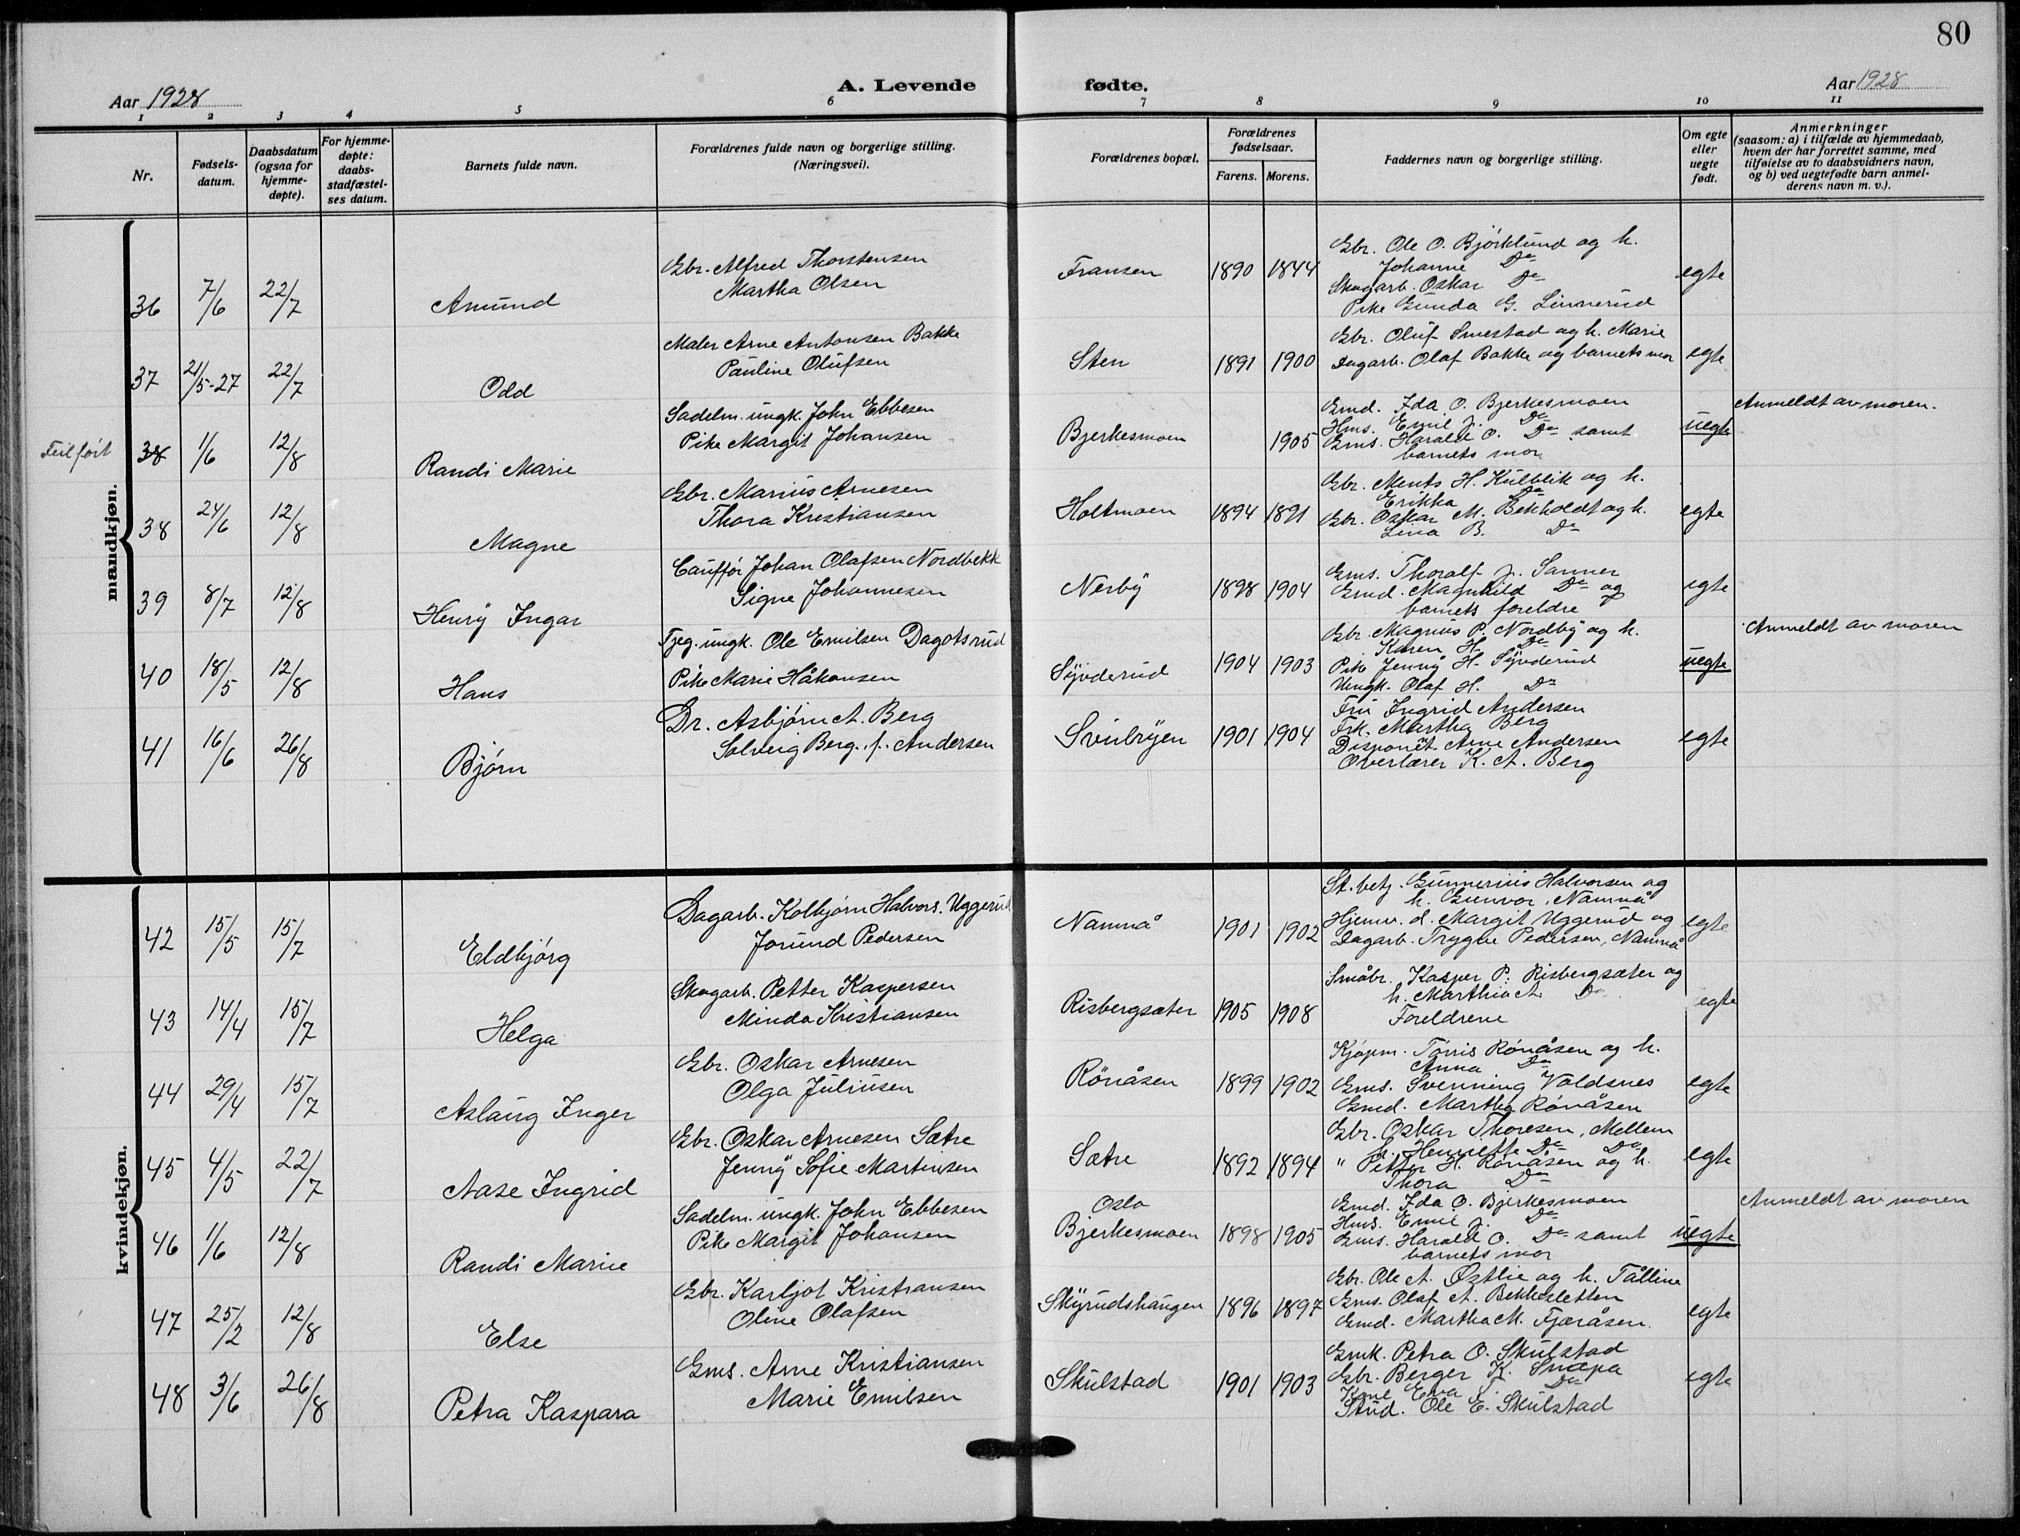 80
Aar 1928
A. Levende fødte.
Aar 1928
1 2 3 4 5 6 7 8 9 10 11
Nr.
Fødsels-
datum.
Daabsdatum
(ogsaa for
hjemme-
døpte).
For hjemme-
døpte:
daabs-
stadfæstel-
ses datum.
Barnets fulde navn.
Forældrenes fulde navn og borgerlige stilling.
(Næringsvei).
Forældrenes bopæl.
Forældrenes
fødselsaar.
Farens. Morens.
Faddernes navn og borgerlige stilling.
Om egte
eller
uegte
født.
Anmerkninger
(saasom: a) i tilfælde av hjemmedaab,
hvem der har forrettet samme, med
tilføielse av to daabsvidners navn,
og b) ved uegtefødte barn anmel-
derens navn m. v.).
mandkjøn.
36 7/6 22/7 Amund
Gbr. Alfred Thorstensen
Martha Olsen
Fransen 1890 1844
Gbr. Ole O. Bjørklund og h.
Johanne Do
Skogarb. Oskar Do
Pike Gunda G. Linnerud
egte
37 21/5-27 22/7 Odd
Maler Arne Antonsen Bakke
Pauline Olufsen
Sten 1891 1900
Gbr. Oluf Smestad og h. Marie
Dagarb. Olaf Bakke og barnets mor
egte
Feilført 38 1/6 12/8 Randi Marie
Sadelm. ungk. John Ebbesen
Pike Margit Johansen
Bjerkesmoen 1905
Gmd. Ida O. Bjerkesmoen
Hms. Emil J. Do
Gms. Harald O. Do samt
barnets mor
uegte
Anmeldt av moren.
38 24/6 12/8 Magne
Gbr. Marius Arnesen
Thora Kristiansen
Holtmoen 1894 1891
Gbr. Ments H. Kulblik og h.
Erikka Do
Gbr. Oskar M. Bekholdt og h.
Lina B. Do
egte
39 8/7 12/8 Henry Ingar
Cauffør Johan Olafsen Nordbekk
Signe Johannesen
Nerby 1898 1904
Gms. Thoralf J. Sanner
Gmd. Magnhild Do og
barnets foreldre
egte
40 18/5 12/8 Hans
Tjeg. ungk. Ole Emilsen Dagotsrud
Pike Marie Håkonsen
Syvderud 1904 1903
Gbr. Magnus P. Nordby og h.
Karen H. Do
Pike Jenny H. Syvderud
Ungk. Olaf H. Do
uegte
Anmeldt av moren
41 16/6 26/8 Bjørn
Dr. Asbjørn A. Berg
Solveig Berg. f. Andersen
Svulryen 1901 1904
Fru Ingrid Andersen
Frk. Martha Berg
Disponent Arne Andersen
Overlærer K. A. Berg
egte
kvindekjøn.
42 15/5 15/7 Eldbjørg
Dagarb. Kolbjørn Halvors. Uggerud
Jorund Pedersen
Namnå 1901 1902
St. betj. Gunnerius Halvorsen og
h. Gunvor, Namnå
Hjemv. d. Margit Uggerud og
Dagarb. Trygve Pedersen, Namnå
egte
43 14/4 15/7 Helga
Skogarb. Petter Kaspersen
Minda Kristiansen
Risbergsæter 1905 1908
Småbr. Kasper P. Risbergsæter og
h. Marthia A. Do
Foreldrene
egte
44 29/4 15/7 Aslaug Inger
Gbr. Oskar Arnesen
Olga Juliusen
Rønåsen 1899 1902
Kjøpm. Tørris Rønåsen og h.
Anna Do
Gms. Svenning Voldsnes
Gmd. Martha Rønåsen
egte
45 4/5 22/7 Aase Ingrid
Gbr. Oskar Arnesen Sætre
Jenny Sofie Martinsen
Sætre 1892 1894
Gbr. Oskar Thoresen, Mellem
h. Henriette Do Do
" Petter H. Rønåsen og h.
Thora Do
egte
46 1/6 12/8 Randi Marie
Sadelm. ungk. John Ebbesen
Pike Margit Johansen
Oslo
Bjerkesmoen 1898 1905
Gmd. Ida O. Bjerkesmoen
Hms. Emil J. Do
Gms. Harald O. Do samt
barnets mor
uegte
Anmeldt av moren
47 25/2 12/8 Else
Gbr. Karljot Kristiansen
Oline Olafsen
Skyrudshaugen 1896 1897
Gbr. Ole A. Østlie og h. Tålline
Gms. Olaf A. Bekkesletten
Gmd. Martha M. Fjæråsen.
egte
48 3/6 26/8 Petra Kaspara
Gms. Arne Kristiansen
Marie Emilsen
Skulstad 1901 1903
Gmk. Petra O. Skulstad
Gbr. Berger K. Snæpa
Kone Eva Do
Stud. Ole E. Skulstad
egte